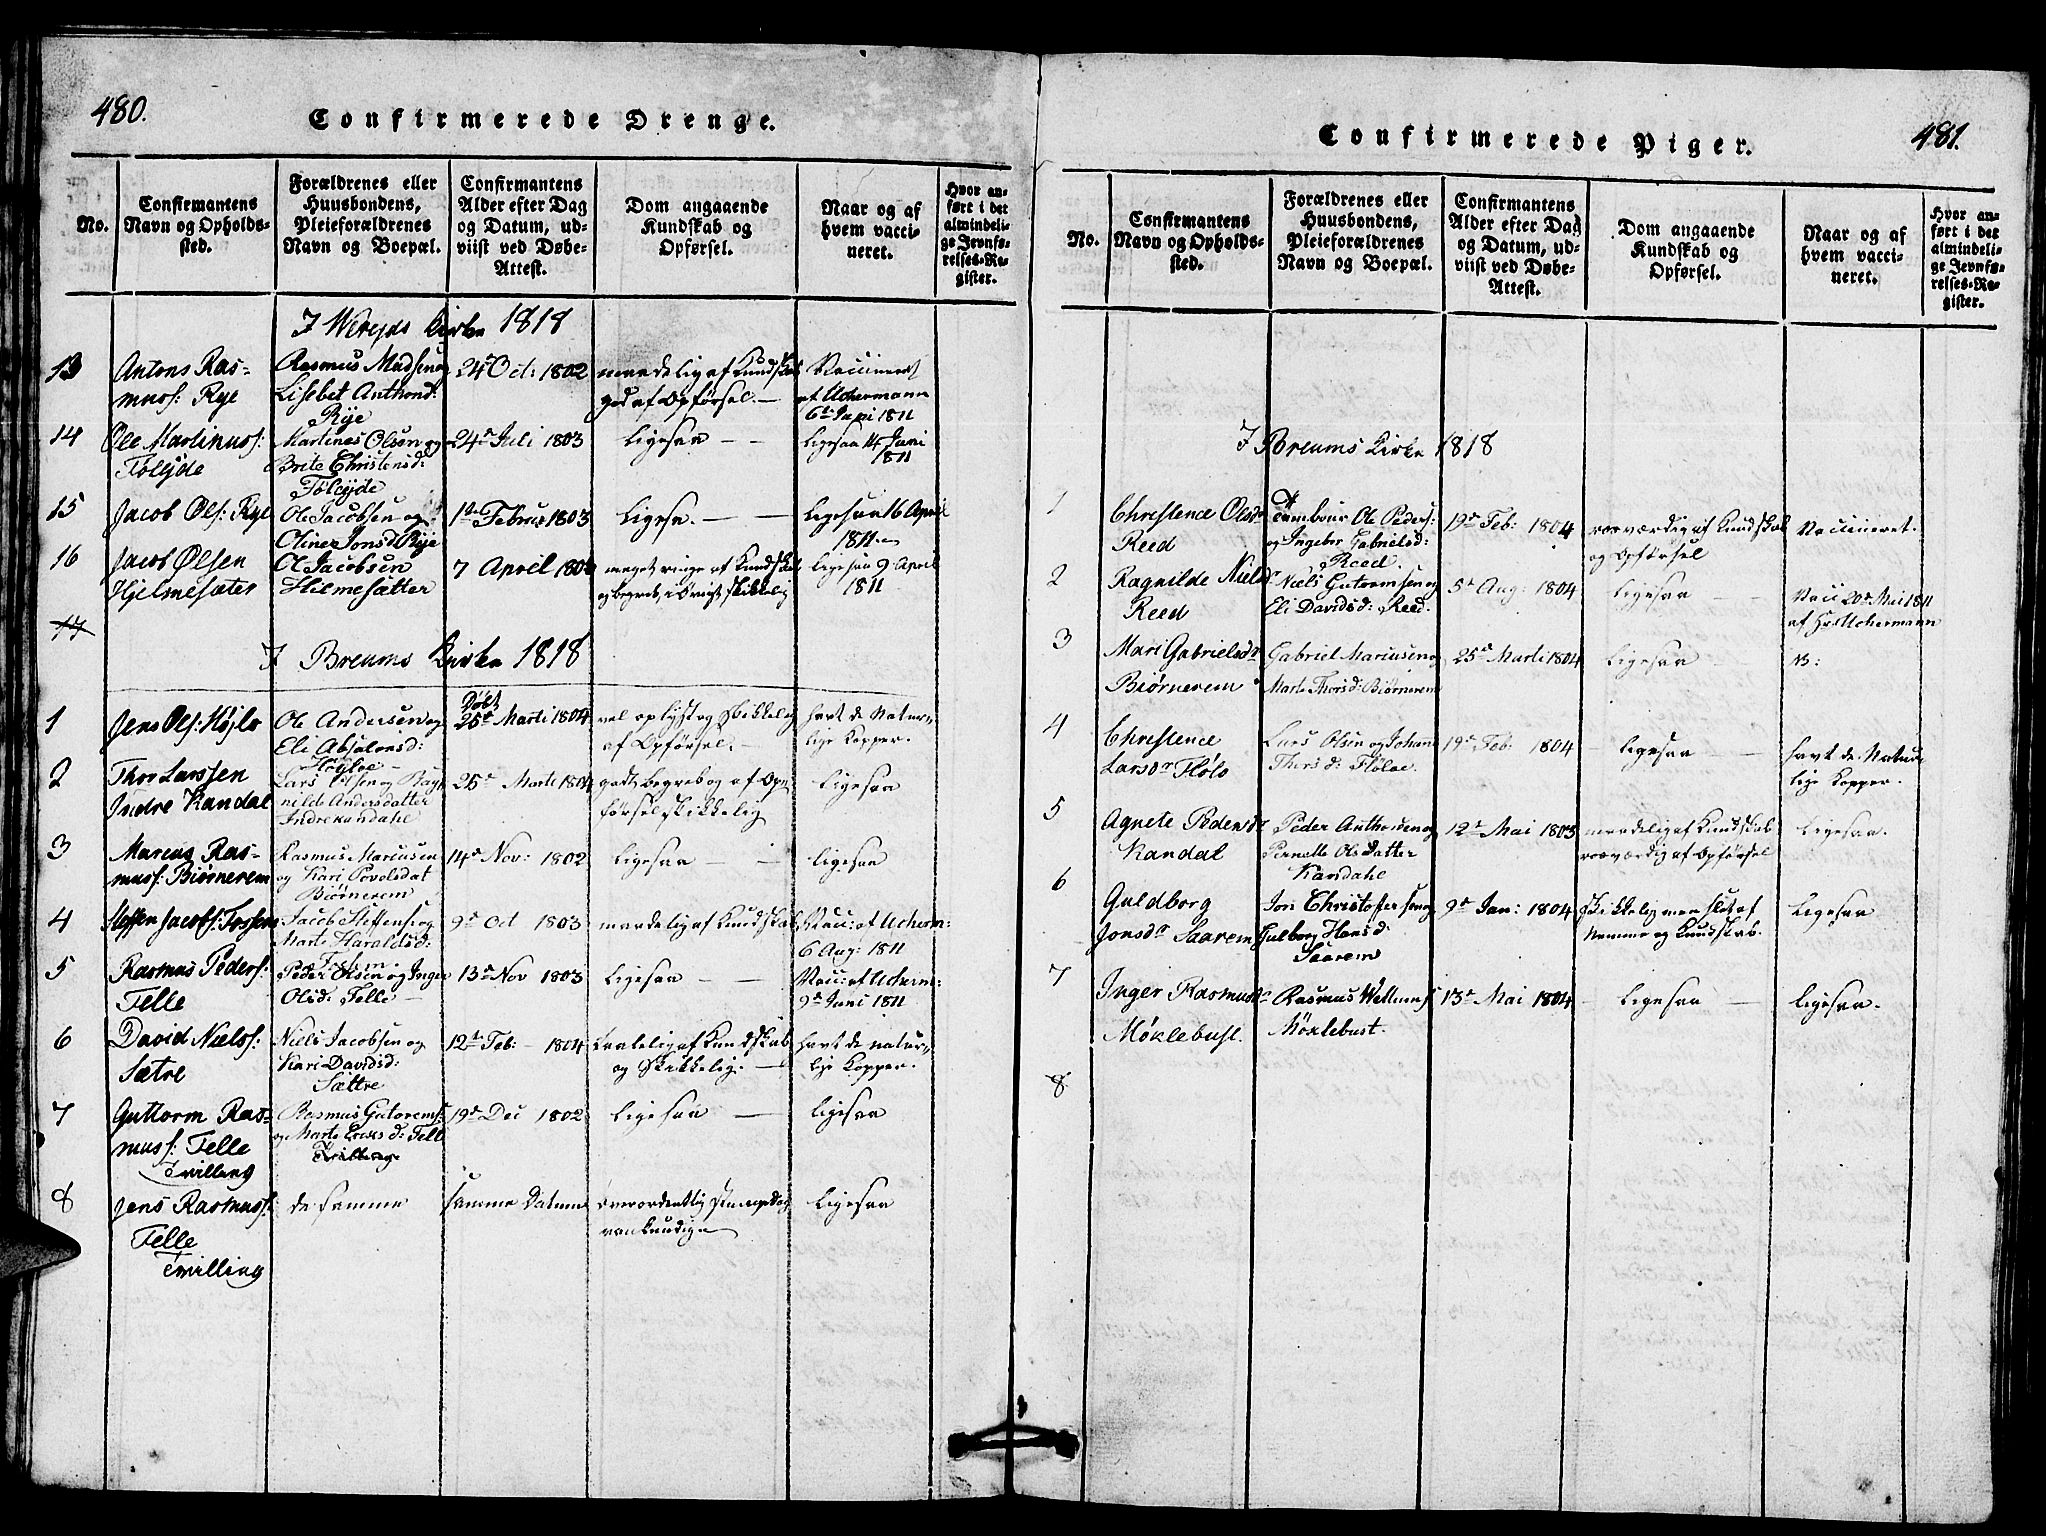 480.
Confirmerede Drenge.
No.
Confirmantens
Navn og Opholds-
sted.
Forældrenes eller
Huusbondens,
Pleieforældrenes
Navn og Boepæl.
Confirmantens
Alder efter Dag
og Datum, ud-
viist ved Døbe-
Attest.
Dom angaaende
Kundskab og
Opførsel.
Naar og af
hvem vacci-
neret.
Hvor an-
ført i det
almindeli-
ge Jevnfø-
relses-Re-
gister.
I Wereyds Kirke 1818
13
Antons Ras-
muss: Rye
Rasmus Madsen og
Lisebet Anthond:
Rye
24de Oct: 1802
maadelig af Kundskab
god af Opførsel. —
Vaccineret
af Uchermann
6te Juni 1811
14
Ole Martinuss:
Tølejde
Martines Olsen og
Brite Christensd:
Tölejde
24de Juli 1803
Ligesaa — —
Ligesaa 14 Juni
1811
15
Jacob Ols: Rye
Ole Jacobsen og
Oline Jonsd Rye
1te Februar 1803
Ligesa. — —
Ligesaa 16 April
1811
16
Jacob Olsen
Hjelmesæter
Ole Jacobsen
Hilmesætter
7 April 180
meget ringe af Kundskab
og begreb, i Øvrigt skikkelig
Ligesaa 9 April
1811
17
I Breums Kirke 1818
1
Jens Ols: Højlo
Ole Andersen og
Eli Absalonsd:
Höyloe
Döbt
25de Marti 1804
vel oplyst og skikkelig
af Opførsel. —
havt de Natur-
lige Kopper.
2
Thor Larssen
Indre Kandal
Lars Olsen og Rag-
nilde Andersdatter
Indrekandahl
25de Marti 1804
godt begreb og af Op-
førsel skikkelig
Ligesaa
3
Marcus Ras-
muss: Biørnerem
Rasmus Marcusen
og Kari Povolsdat
Biørnerem
14de Nov: 1802
Ligesaa — —
Ligesaa
4
Steffen Jacobs: Fossem
Jacob Steffens: og
Marte Haraldsd:
9de Oct 1803
maadelig af Kundskab
Vacc: af Ucherm:
6 Aug: 1811
5
Rasmus Peders:
Felle
Peder Olsen og Inger
Olsd: Felle —
13de Nov 1803
Ligesaa —
Vacc: af Ucherm:
9de Juni 1811
6
David Niels:
Sætre
Niels Jacobsen og
Kari Davidsd:
Sættre
12te Feb: — 1804
taalelig af Kundskab
og Skikkelig. —
havt de natur-
lige Kopper.
7
Guttorm Ras-
muss: Felle
Tvilling
Rasmus Gutorems:
og Marte Ericsd: Felle
Tvillinge
19de Dec 1802
Ligesaa —
Ligesaa
8
Jens Rasmuss:
Felle
Tvilling
de samme
samme Datum
overordentlig slem og
vankundig
Ligesaa
481.
Confirmerede Piger.
No.
Confirmantens
Navn og Opholds-
sted.
Forældrenes eller
Huusbondens,
Pleieforældrenes
Navn og Boepæl.
Confirmantens
Alder efter Dag
og Datum, ud-
viist ved Døbe-
Attest.
Dom angaaende
Kundskab og
Opførsel.
Naar og af
hvem vacci-
neret.
Hvor an-
ført i det
almindeli-
ge Jevnfø-
relses-Re-
gister.
I Breums Kirke 1818
1
Christence Olsdr
Reed
Tambour Ole Peders:
og Ingebor Gabrielsd:
Reed.
19de Feb: 1804
roesværdig af Kundskab
og Opførsel
Vaccineret.
2
Ragnilde Nielsdr
Reed
Niels Gutormsen og
Eli Davidsd: Reed.
5te Aug: 1804
Ligesaa —
Vacc 20de Mai 1811
af Hr Uchermann
3
Mari Gabrielsdr
Biørnerem
Gabriel Mariusen og
Marte Thorsd: Biørnerem
25de Marti 1804
Ligesaa —
V:
4
Christence
Larsdr Flölo
Lars Olsen og Johan
Thorsd: Flöloe.
19de Feb: 1804
— Ligesaa —
havt de Natur
lige Kopper.
5
Agnete Pedersdr
Kandal
Peder Anthonsen og
Pernelle Olsdatter
Kandahl
12te Mai 1803
maadelig af Kundskab
roesværdig af Opførsel
Ligesaa.
6
Guldborg
Jonsdr Saarem
Jon Christoffersen og
Gulborg Hansd:
Saarem
9de Jan: 1804
skikkelig men slet af
Nemme og Kundskab.
Ligesaa
7
Inger Rasmusdr
Møklebust.
Rasmus Willumsen
Möklebust.
13de Mai 1804
— Ligesaa —
Ligesaa.
8